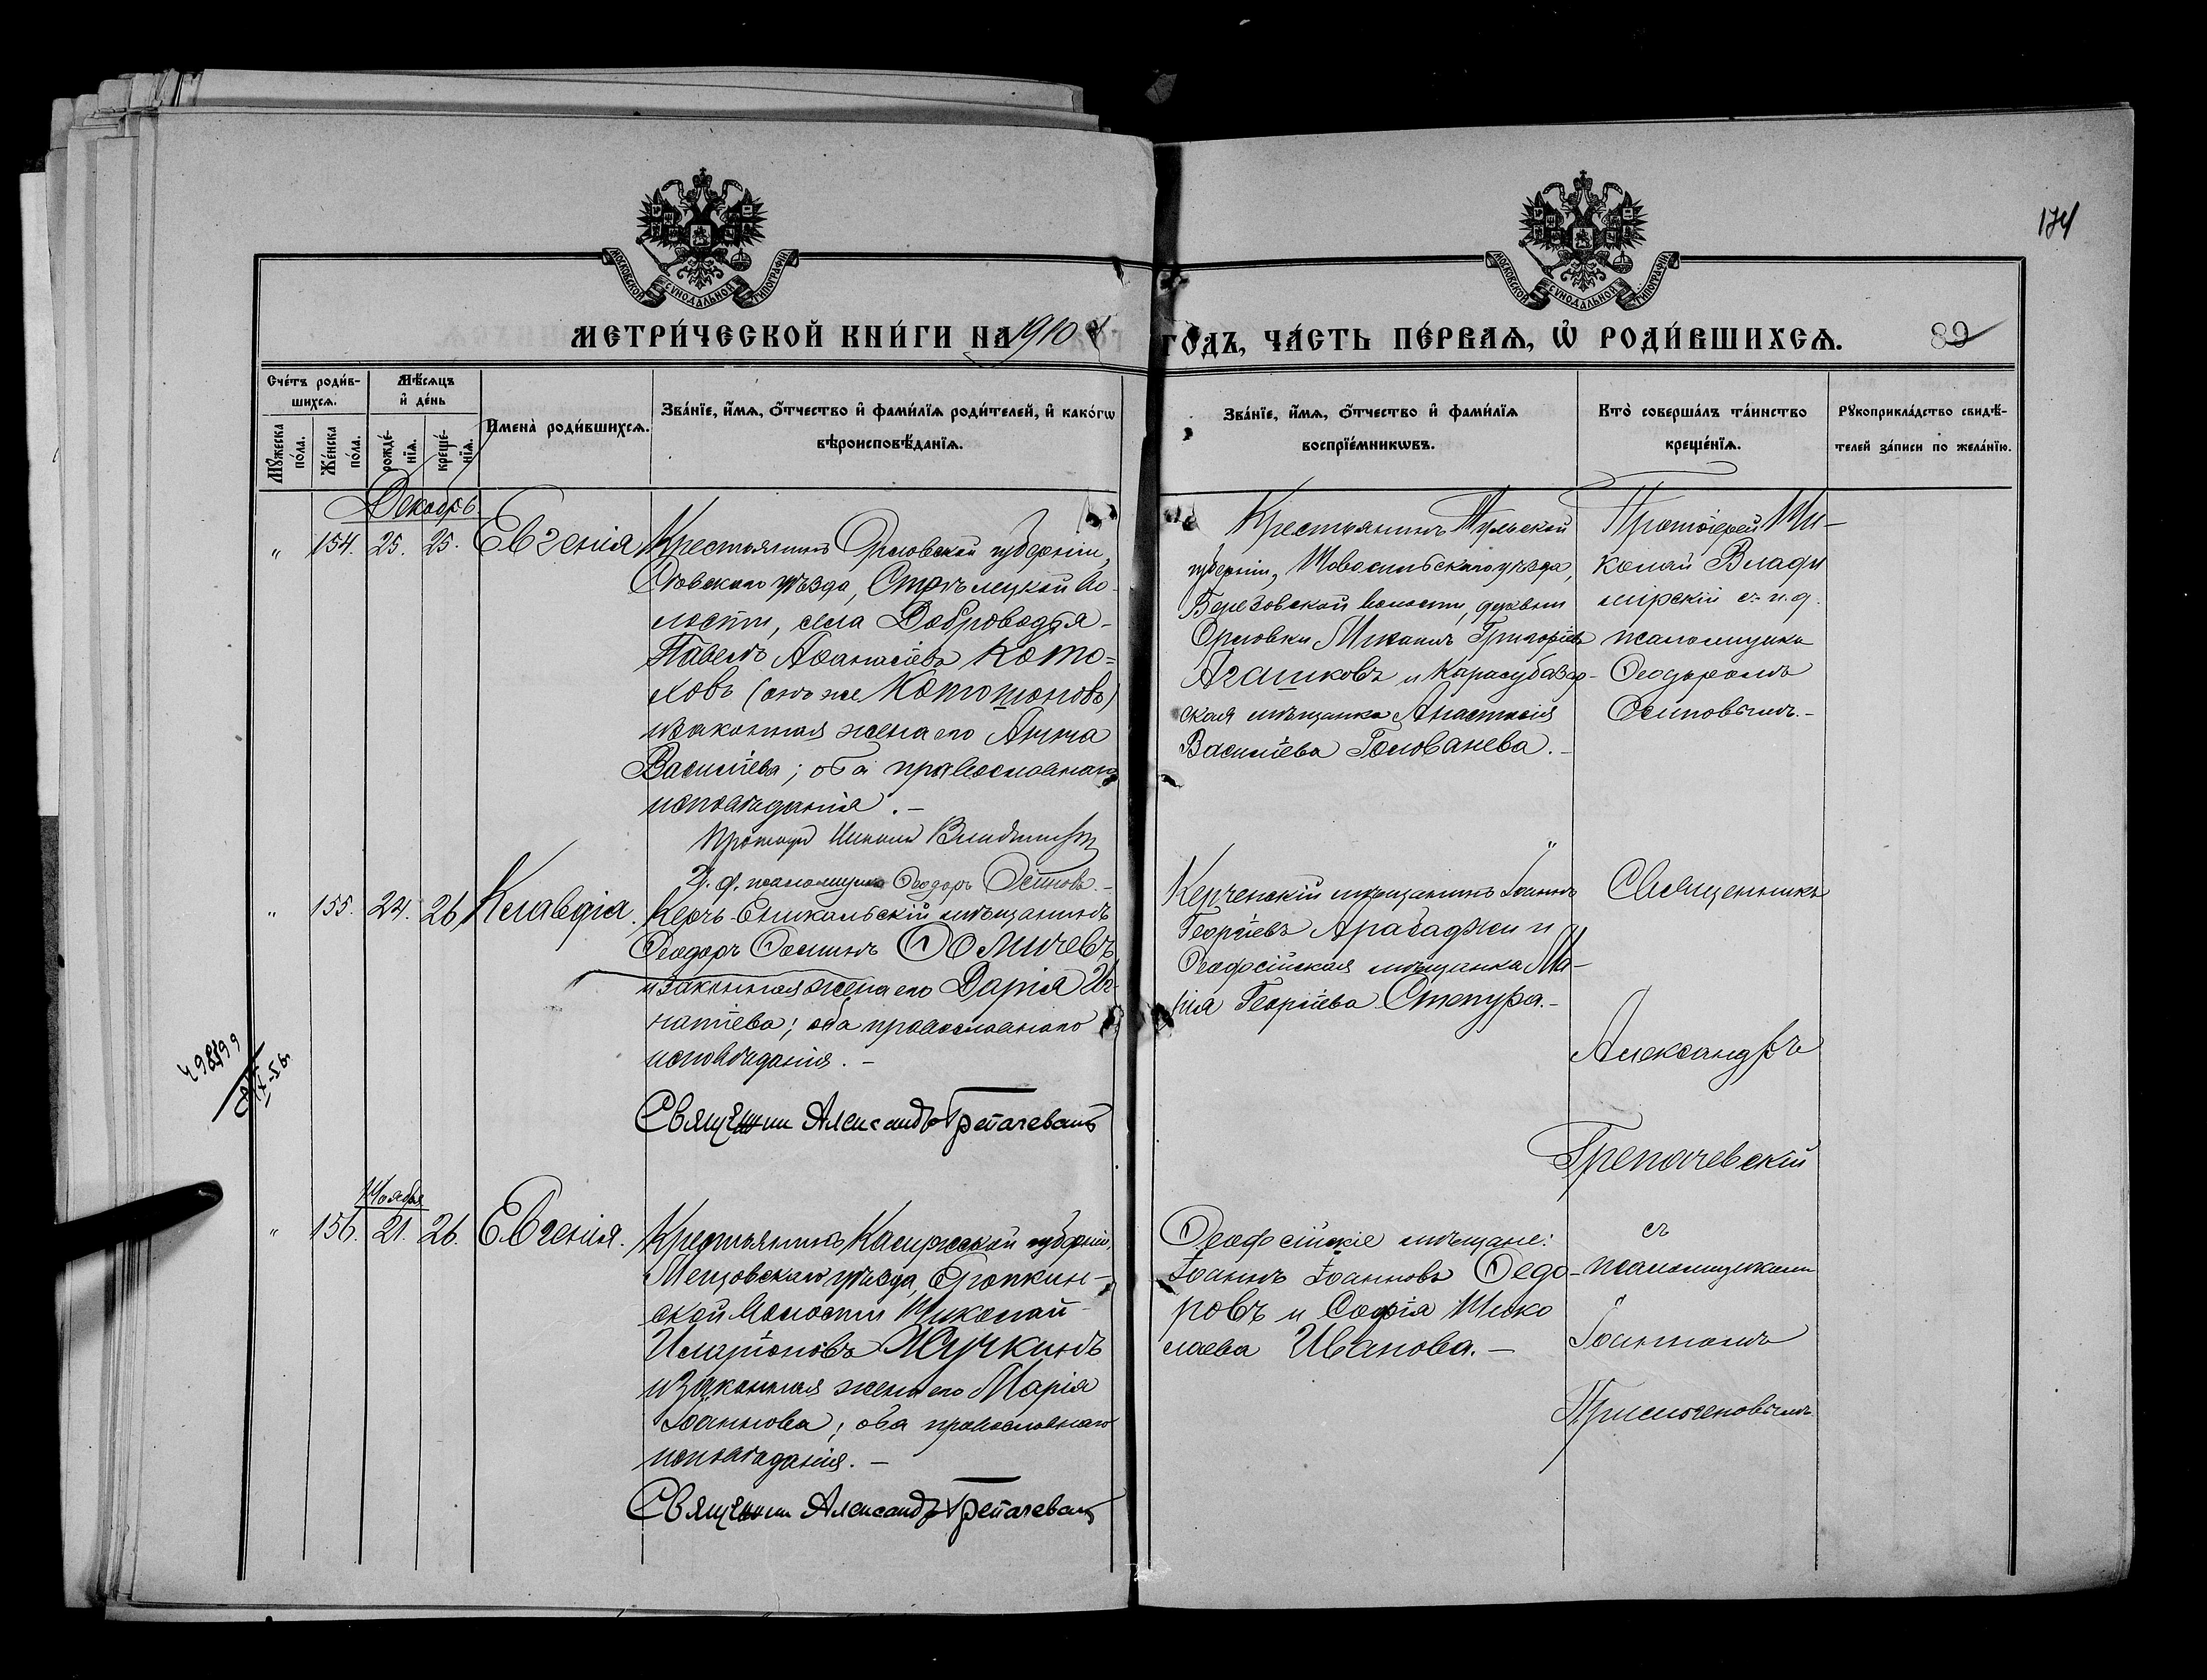 174
МОСКОВСКОЙ СѴНОДАЛЬНОЙ ТИПОГРАФІИ
МОСКОВСКОЙ СѴНОДАЛЬНОЙ ТИПОГРАФІИ
МЕТРИ́ЧЕСКОЙ КНИ́ГИ НА 1910 ГО́ДЪ, ЧА́СТЬ ПЕ́РВАѦ, Ѡ҆ РОДИ́ВШИХСѦ.
89
Сче́тъ роди́в-
шихсѧ.
Мꙋ́жеска по́ла.
Же́нска по́ла.
Мѣ́сѧцъ
и҆ де́нь
рожде́-
нїѧ.
креще́-
нїѧ.
И҆мена̀ роди́вшихсѧ.
Зва́нїе, и҆́мѧ, ѻ҆́тчество и҆ фами́лїѧ роди́телей, и҆ како́гѡ
вѣроисповѣ́данїѧ.
Зва́нїе, и҆́мѧ, ѻ҆́тчество и҆ фами́лїѧ
воспрїе́мникѡвъ.
Кто̀ соверша́лъ та́инство
креще́нїѧ.
Рꙋкоприкла́дство свидѣ́-
телей за́писи по жела́нїю.
Декабрь
" 154. 25. 25. Евгенія
Крестьянинъ Орловской губерніи,
Сѣвскаго уѣзда, Стрѣлецкой во-
лости, села Доброводья-
Павелъ Аѳанасіевъ Кото-
ховъ (онъ же
и законная жена его Анна
Васильева; оба православнаго
исповѣданія. -
Протоіерей Николай Владимірскій
И. д. псаломщика Ѳеодоръ Осиповъ. -
Крестьянинъ Тульской
губерніи, Новосильскаго уѣзда,
Березовской волости, деревни
Орловки Михаилъ Григоріевъ
Агашковъ и Карасубазар-
ская мѣщанка Анастасія
Васильева Голованева. -
Протоіерей Ни-
колай Влади
мірскій съ и. д.
псаломщика
Ѳеодоромъ
Осиповымъ. -
" 155. 24. 26 Клавдія.
Керчь-Еникальскій мѣщанинъ
Ѳеодоръ Ѳоминъ Ѳомичевъ
и законная жена его Дарія Иг-
натіева; оба православнаго
исповѣданія. -
Священникъ Александръ Трепачевскій
Керченскій мѣщанинъ Іоаннъ
Георгіевъ Арабаджи и
Ѳеодосійская мѣщанка Ма-
рія Георгіева Степура. -
Священникъ
Александръ
Трепачевскій
съ
псаломщикомъ
Іоанномъ
498199
Ноября
" 156. 21. 26. Евгенія.
Крестьянинъ Калужской губерніи,
Мещовскаго уѣзда,
ской волости Николай
Иларіоновъ
и законная жена его Марія
Іоаннова; оба православнаго
исповѣданія. -
Священникъ Александръ Трепачевскій
Ѳеодосійскіе мѣщане:
Іоаннъ Іоанновъ Ѳедо-
ровъ и Софія Нико
лаева Иванова. -